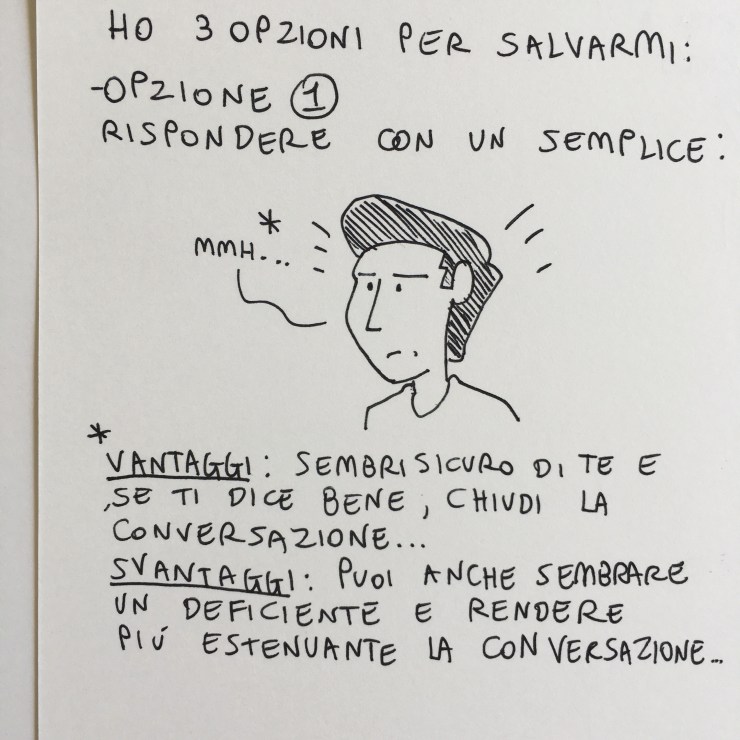 HO 3 OPZIONI PER SALVARMI:
-OPZIONE 1
RISPONDERE CON UN SEMPLICE:
*
MMH...
*
VANTAGGI: SEMBRI SICURO DI TE E
SE TI DICE BENE, CHIUDI LA
CONVERSAZIONE...
SVANTAGGI: PUOI ANCHE SEMBRARE
UN DEFICIENTE E RENDERE
PIÚ ESTENUANTE LA CONVERSAZIONE...